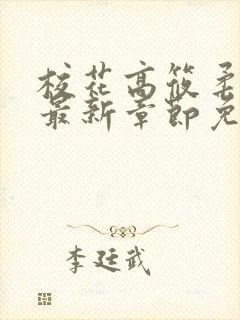 校花高筱柔
最新章節免
李廷武